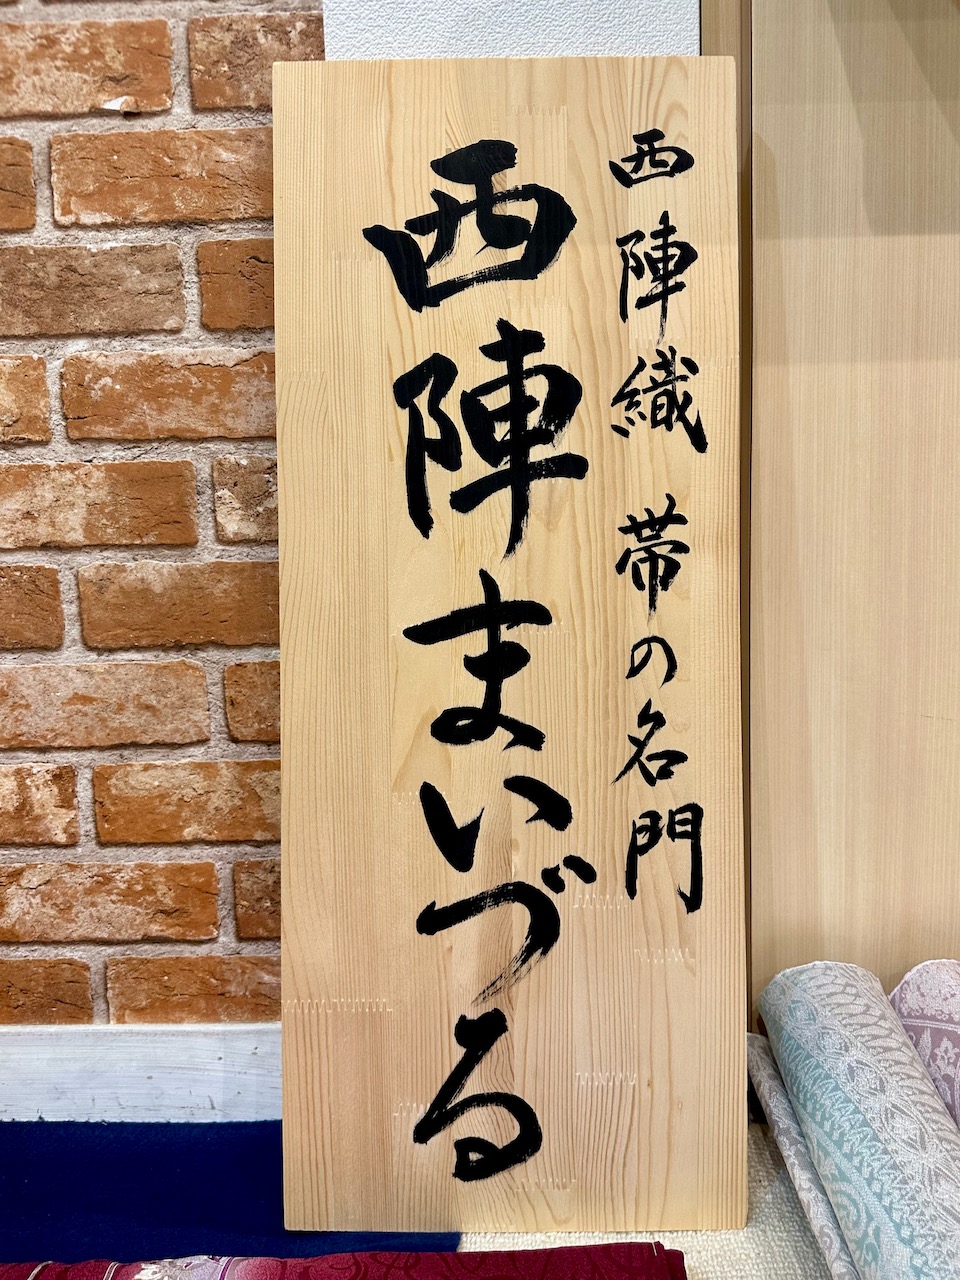 西陣織 帯の名門
西陣まいづる